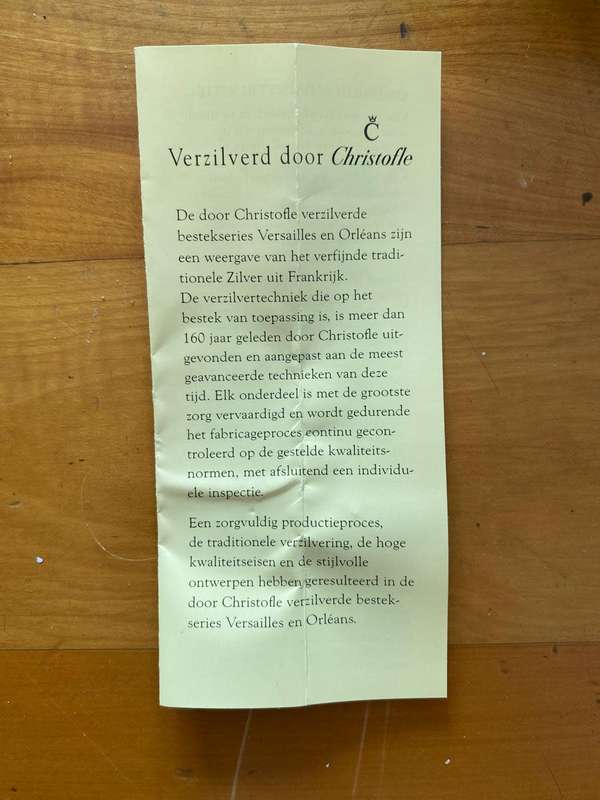 Č
Verzilverd door Christofle
De door Christofle verzilverde
bestekseries Versailles en Orléans zijn
een weergave van het verfijnde tradi-
tionele Zilver uit Frankrijk.
De verzilvertechniek die op het
bestek van toepassing is, is meer dan
160 jaar geleden door Christofle uit-
gevonden en aangepast aan de meest
geavanceerde technieken van deze
tijd. Elk onderdeel is met de grootste
zorg vervaardigd en wordt gedurende
het fabricageproces continu gecon-
troleerd op de gestelde kwaliteits-
normen, met afsluitend een individu-
ele inspectie.
Een zorgvuldig productieproces,
de traditionele verzilvering, de hoge
kwaliteitseisen en de stijlvolle
ontwerpen hebben geresulteerd in de
door Christofle verzilverde bestek-
series Versailles en Orléans.